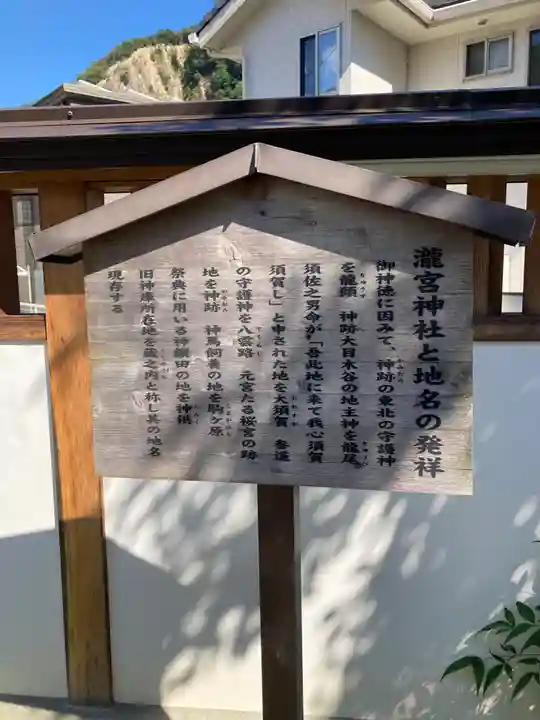 瀧宮神社と地名の発祥
御神徳に因みて、神跡の東北の守護神
を龍頭　神跡大日木谷の地主神を龍尾
須佐之男命が「吾此地に来て我心須賀
須賀し」と申された地を大須賀　参道
の守護神を八雲路　元宮たる桜宮の跡
地を神跡　神馬飼養の地を駒ヶ原
祭典に用いる神饌田の地を神供
旧神庫所在地を蔵之内と称し其の地名
現存する